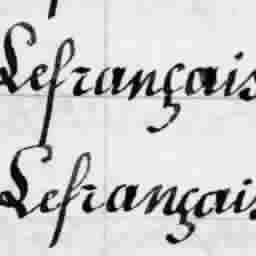 Lefrançais
Lefrançais